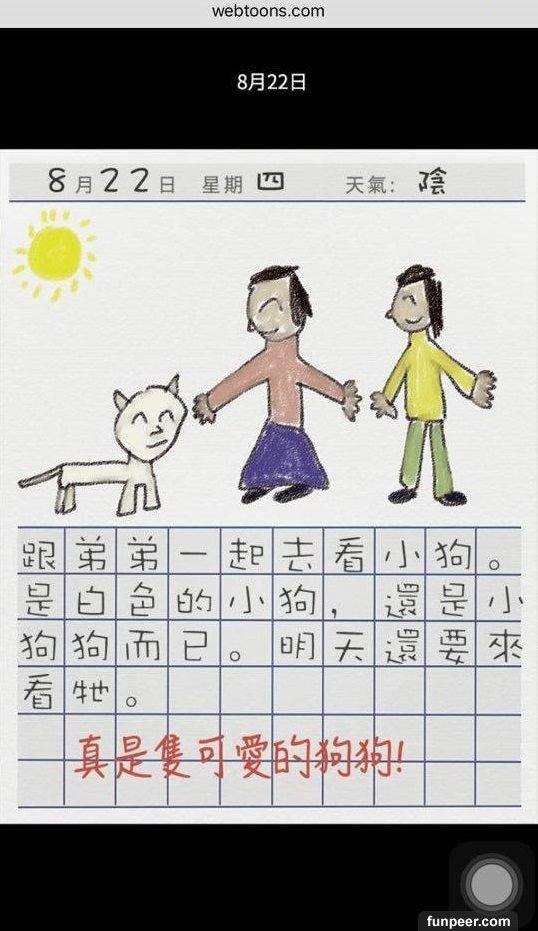 webtoons.com
8月22日
8月22日 星期四 天氣: 陰
跟弟弟一起去看小狗。
是白色的小狗，還是小
狗狗而已。明天還要來
看牠。
真是隻可愛的狗狗!
funpeer.com